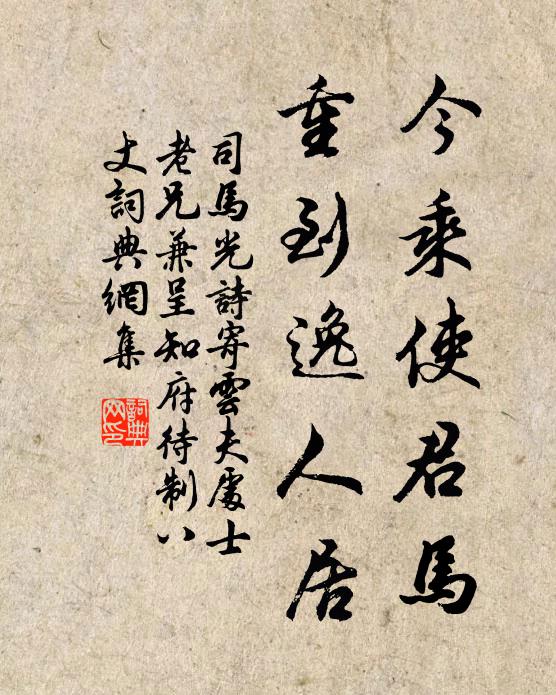 今乘使君馬
重到逸人居
司馬光詩寄雲夫處士
老兄兼呈知府待制八
丈詞典網集
詞典
网印